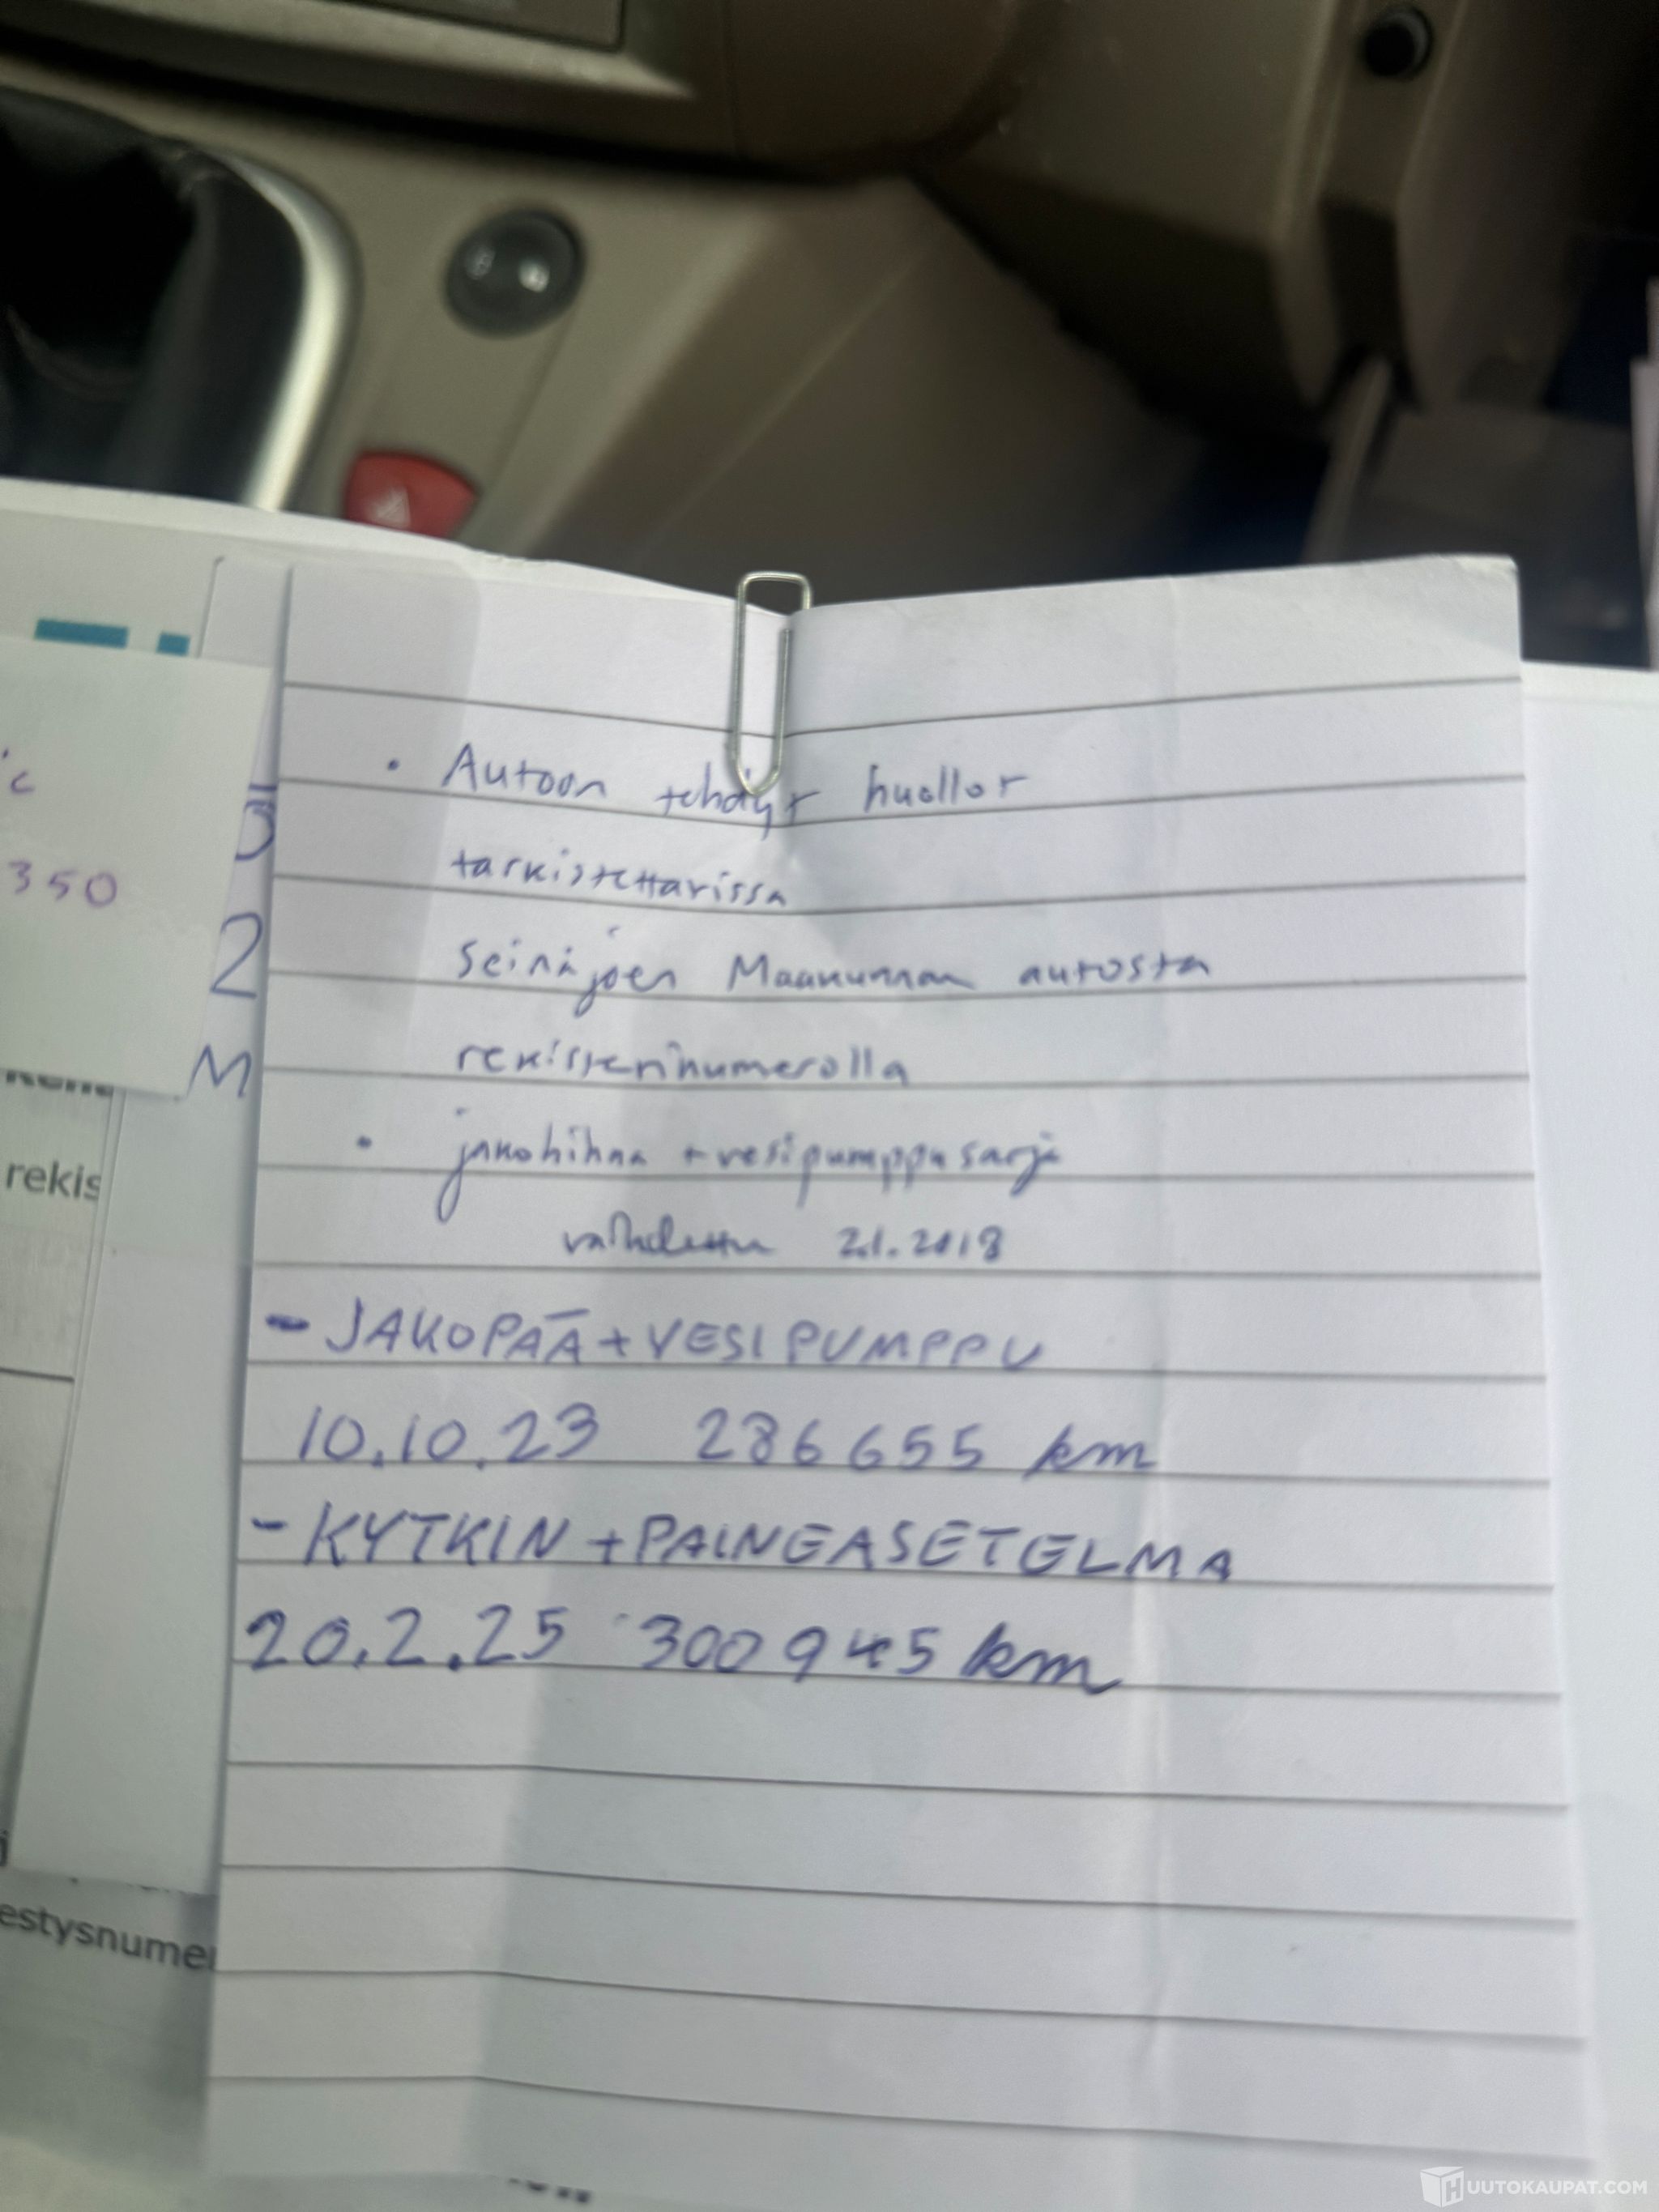 • Autoon tehdyt huollot
tarkistettavissa
Seinäjoen Maakunnan autosta
rekisterinumerolla
• jakohihna + vesipumppusarja
vaihdettu 2.1.2018
- JAKOPÄÄ + VESIPUMPPU
10.10.23 286 655 km
- KYTKIN + PAINEASETELMA
20.2.25 300 945 km
350
2
M
rekis
estysnumer
HUUTOKAUPAT.COM